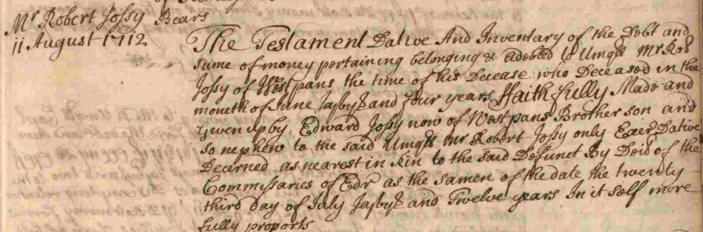 Mr Robert Jossy
11 August 1712
Bears
The Testament Dative And Inventary of the Debt and
sume of money pertaining belonging & adebted to Umqll Mr Rot
Jossy of Westpans the time of his Decease who Deceased in the
moneth of June Jajvijc and four years ffaithfully Made and
Given up by Edward Jossy now of Westpans Brother son and
so nephew to the said Umqll Mr Robert Jossy only Exer Dative
Decerned as nearest in kin to the said Defunct By Decid of the
Commissaries of Edr as the samen of the date the twenty
third day of July Jajvijc and Twelve years In it self more
fully proports